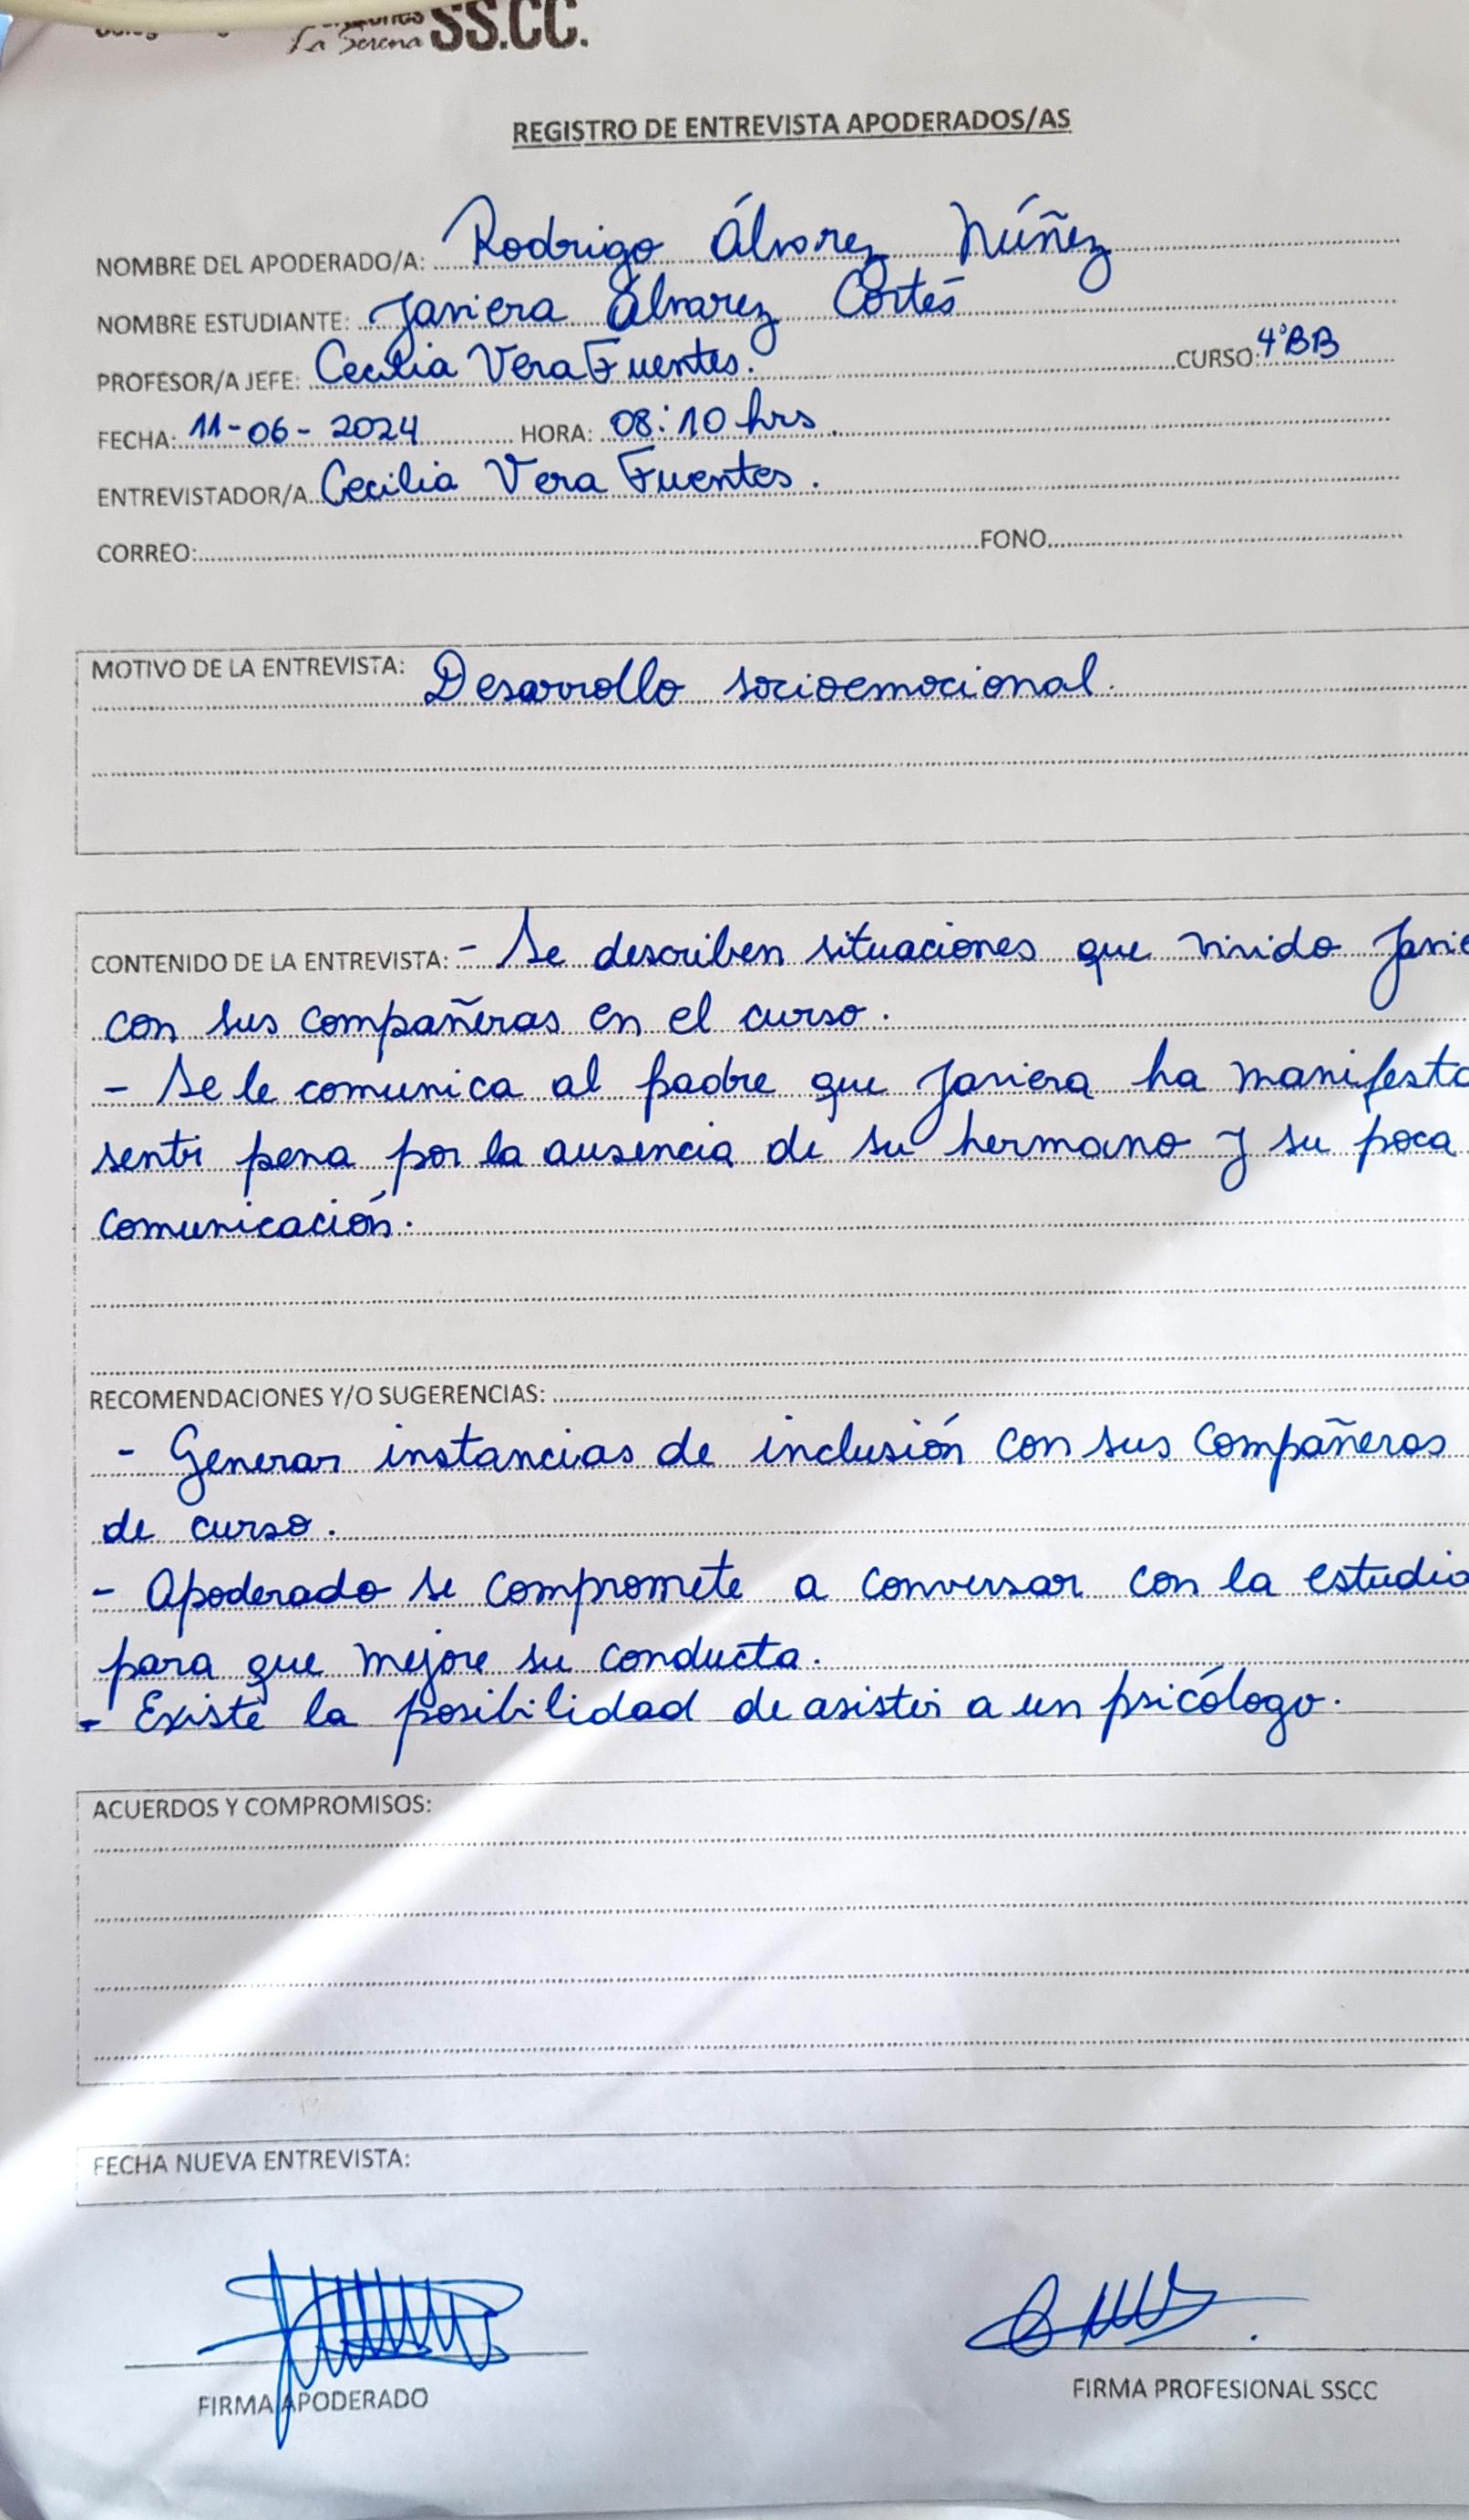 La Serena SS.CC.
REGISTRO DE ENTREVISTA APODERADOS/AS
NOMBRE DEL APODERADO/A: Rodrigo Álvarez Núñez
NOMBRE ESTUDIANTE: Javiera Álvarez Cortés
PROFESOR/A JEFE: Cecilia Vera Fuentes. CURSO: 4°BB
FECHA: 11-06-2024 HORA: 08:10 hrs.
ENTREVISTADOR/A Cecilia Vera Fuentes.
CORREO: FONO
MOTIVO DE LA ENTREVISTA: Desarrollo socioemocional.
CONTENIDO DE LA ENTREVISTA: - Se describen situaciones que vivido Javie
con sus compañeras en el curso.
- Se le comunica al padre que Javiera ha manifesta
sentir pena por la ausencia de su hermano y su poca
comunicación.
RECOMENDACIONES Y/O SUGERENCIAS:
- Generar instancias de inclusión con sus compañeras
de curso.
- Apoderado se compromete a conversar con la estudia
para que mejore su conducta.
- Existe la posibilidad de asistir a un psicólogo.
ACUERDOS Y COMPROMISOS:
FECHA NUEVA ENTREVISTA:
FIRMA APODERADO FIRMA PROFESIONAL SSCC